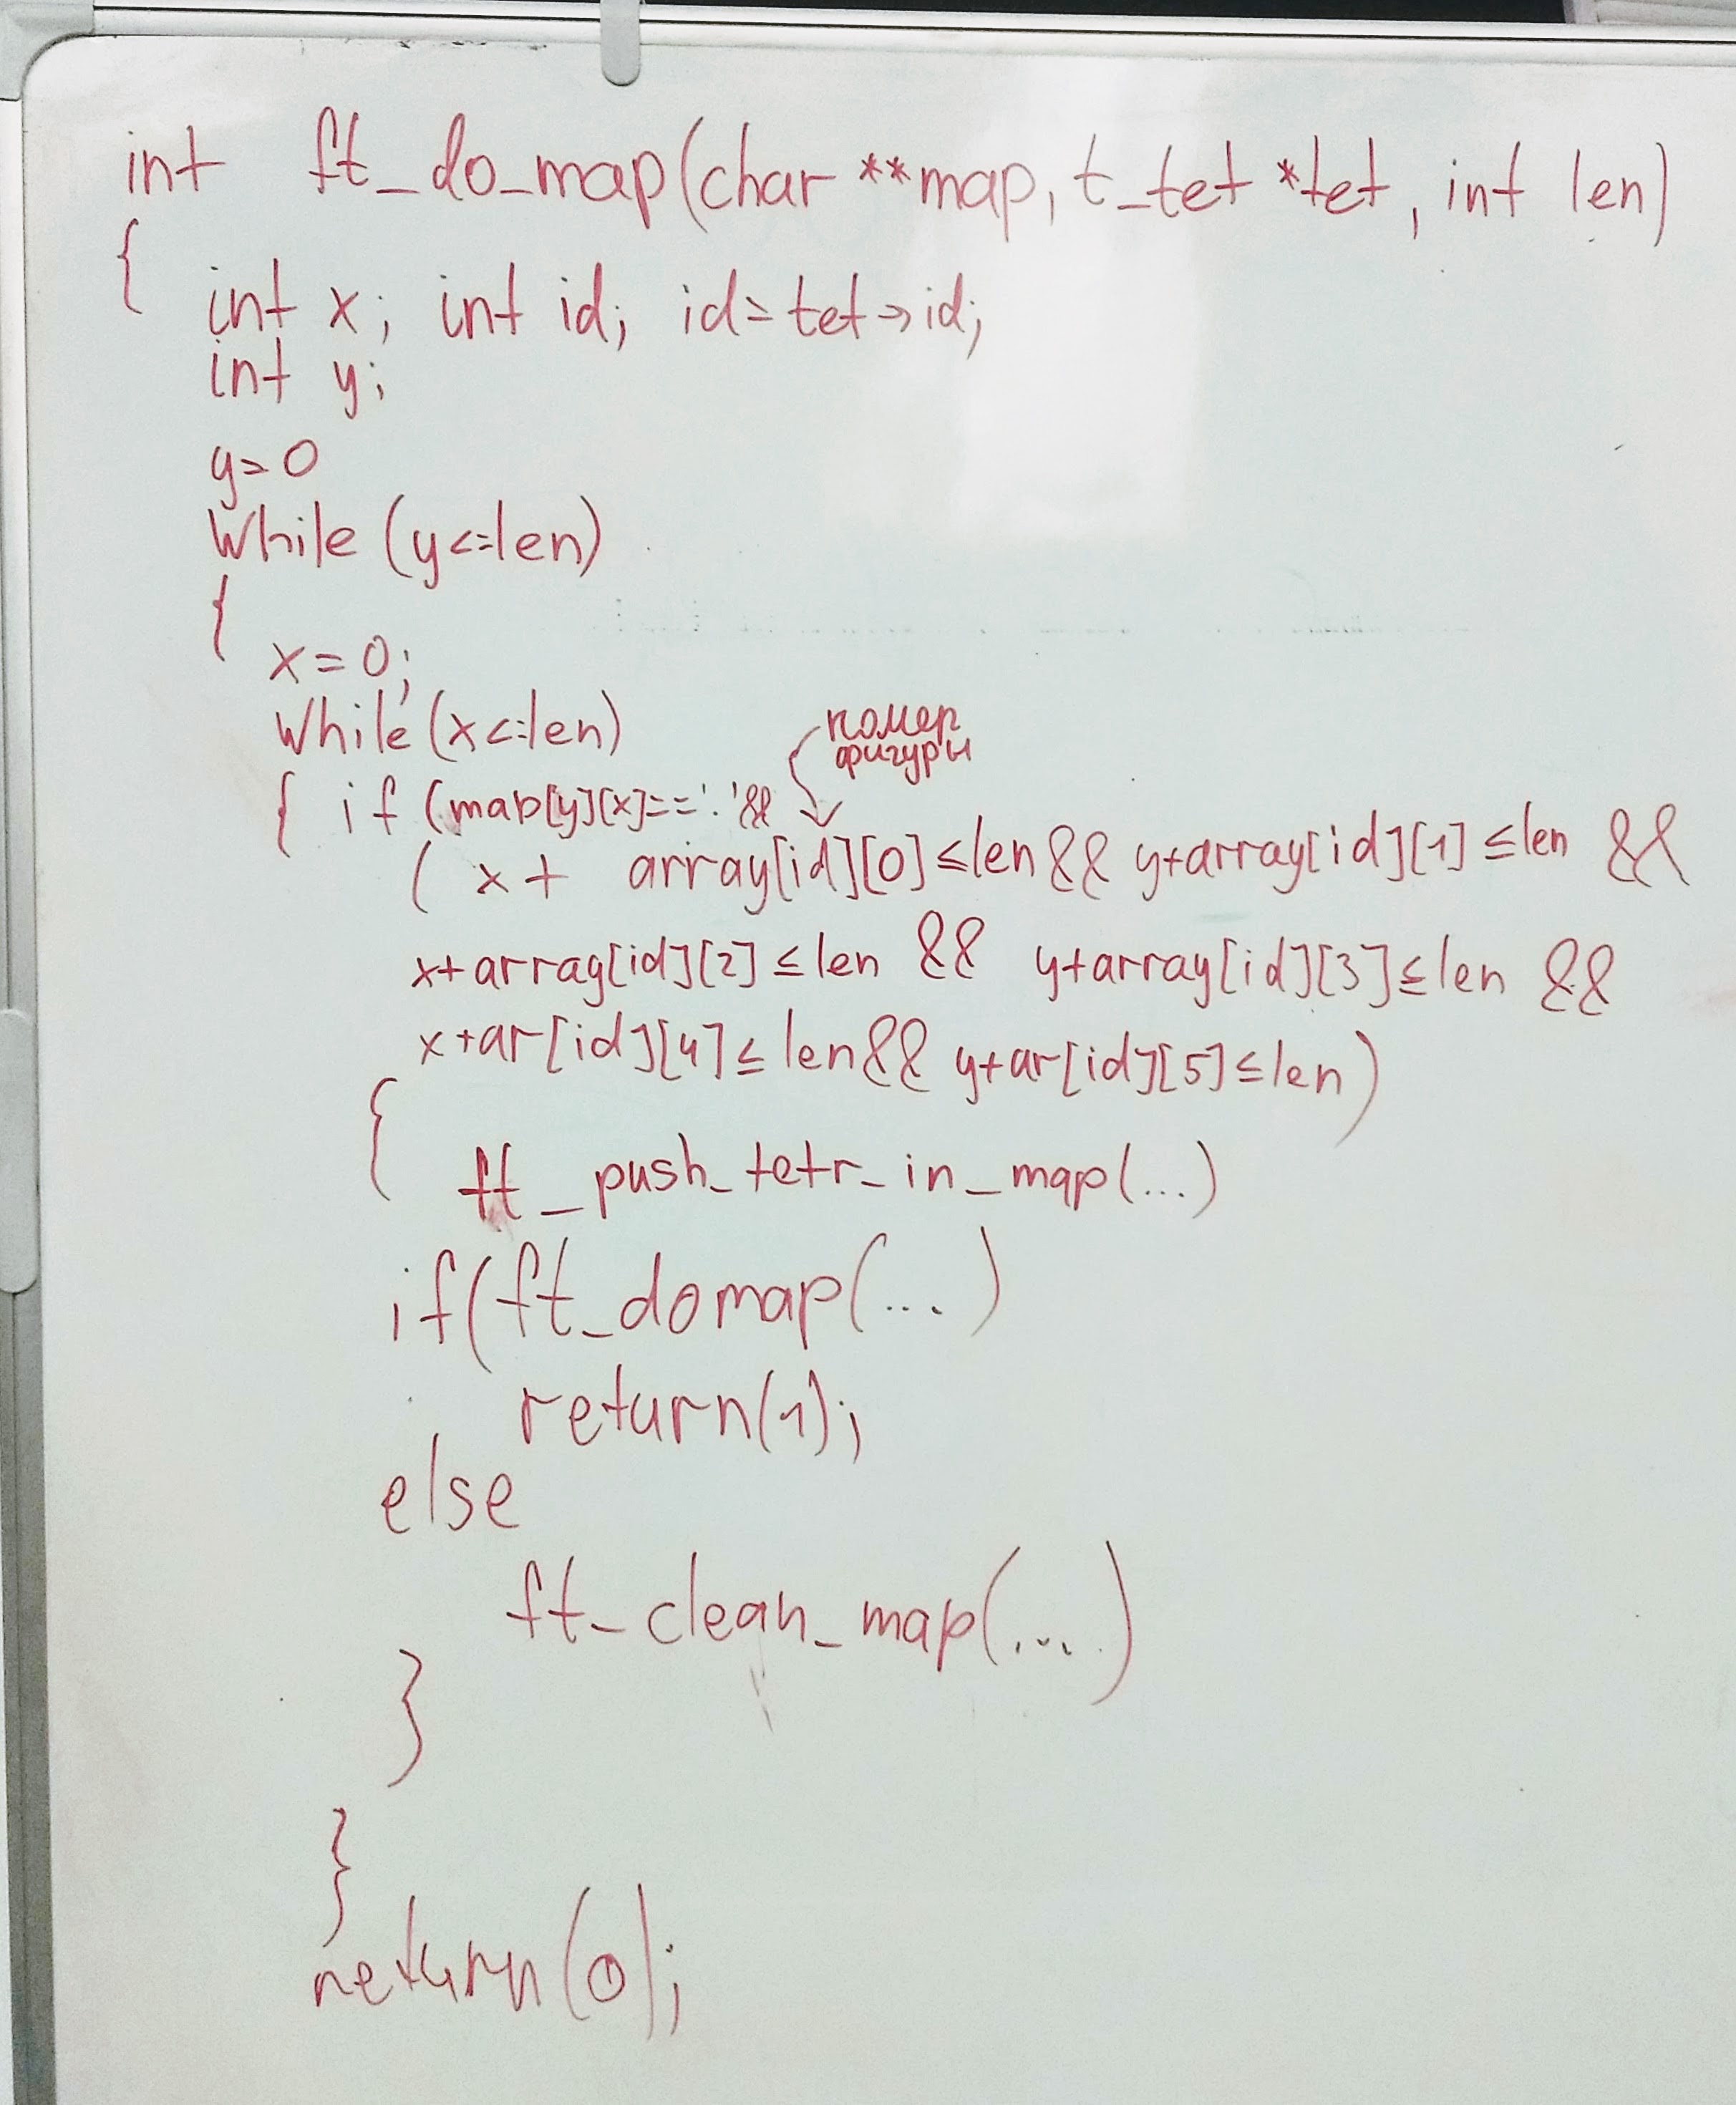 int ft_do_map(char **map, t_tet *tet, int len)
{
int x; int id; id=tet->id;
int y;
y=0
While (y<=len)
{
x=0;
While (x<=len)
номер
фигуры
{ if (map[y][x]=='.'&&
( x+ array[id][0]≤len && y+array[id][1] ≤len &&
x+array[id][2] ≤len && y+array[id][3]≤len &&
x+ar[id][4]≤ len&& y+ar[id][5]≤len)
{
ft_push_tetr_in_map(...)
if(ft_domap(...)
return(1);
else
ft_clean_map(...)
}
}
return(0);